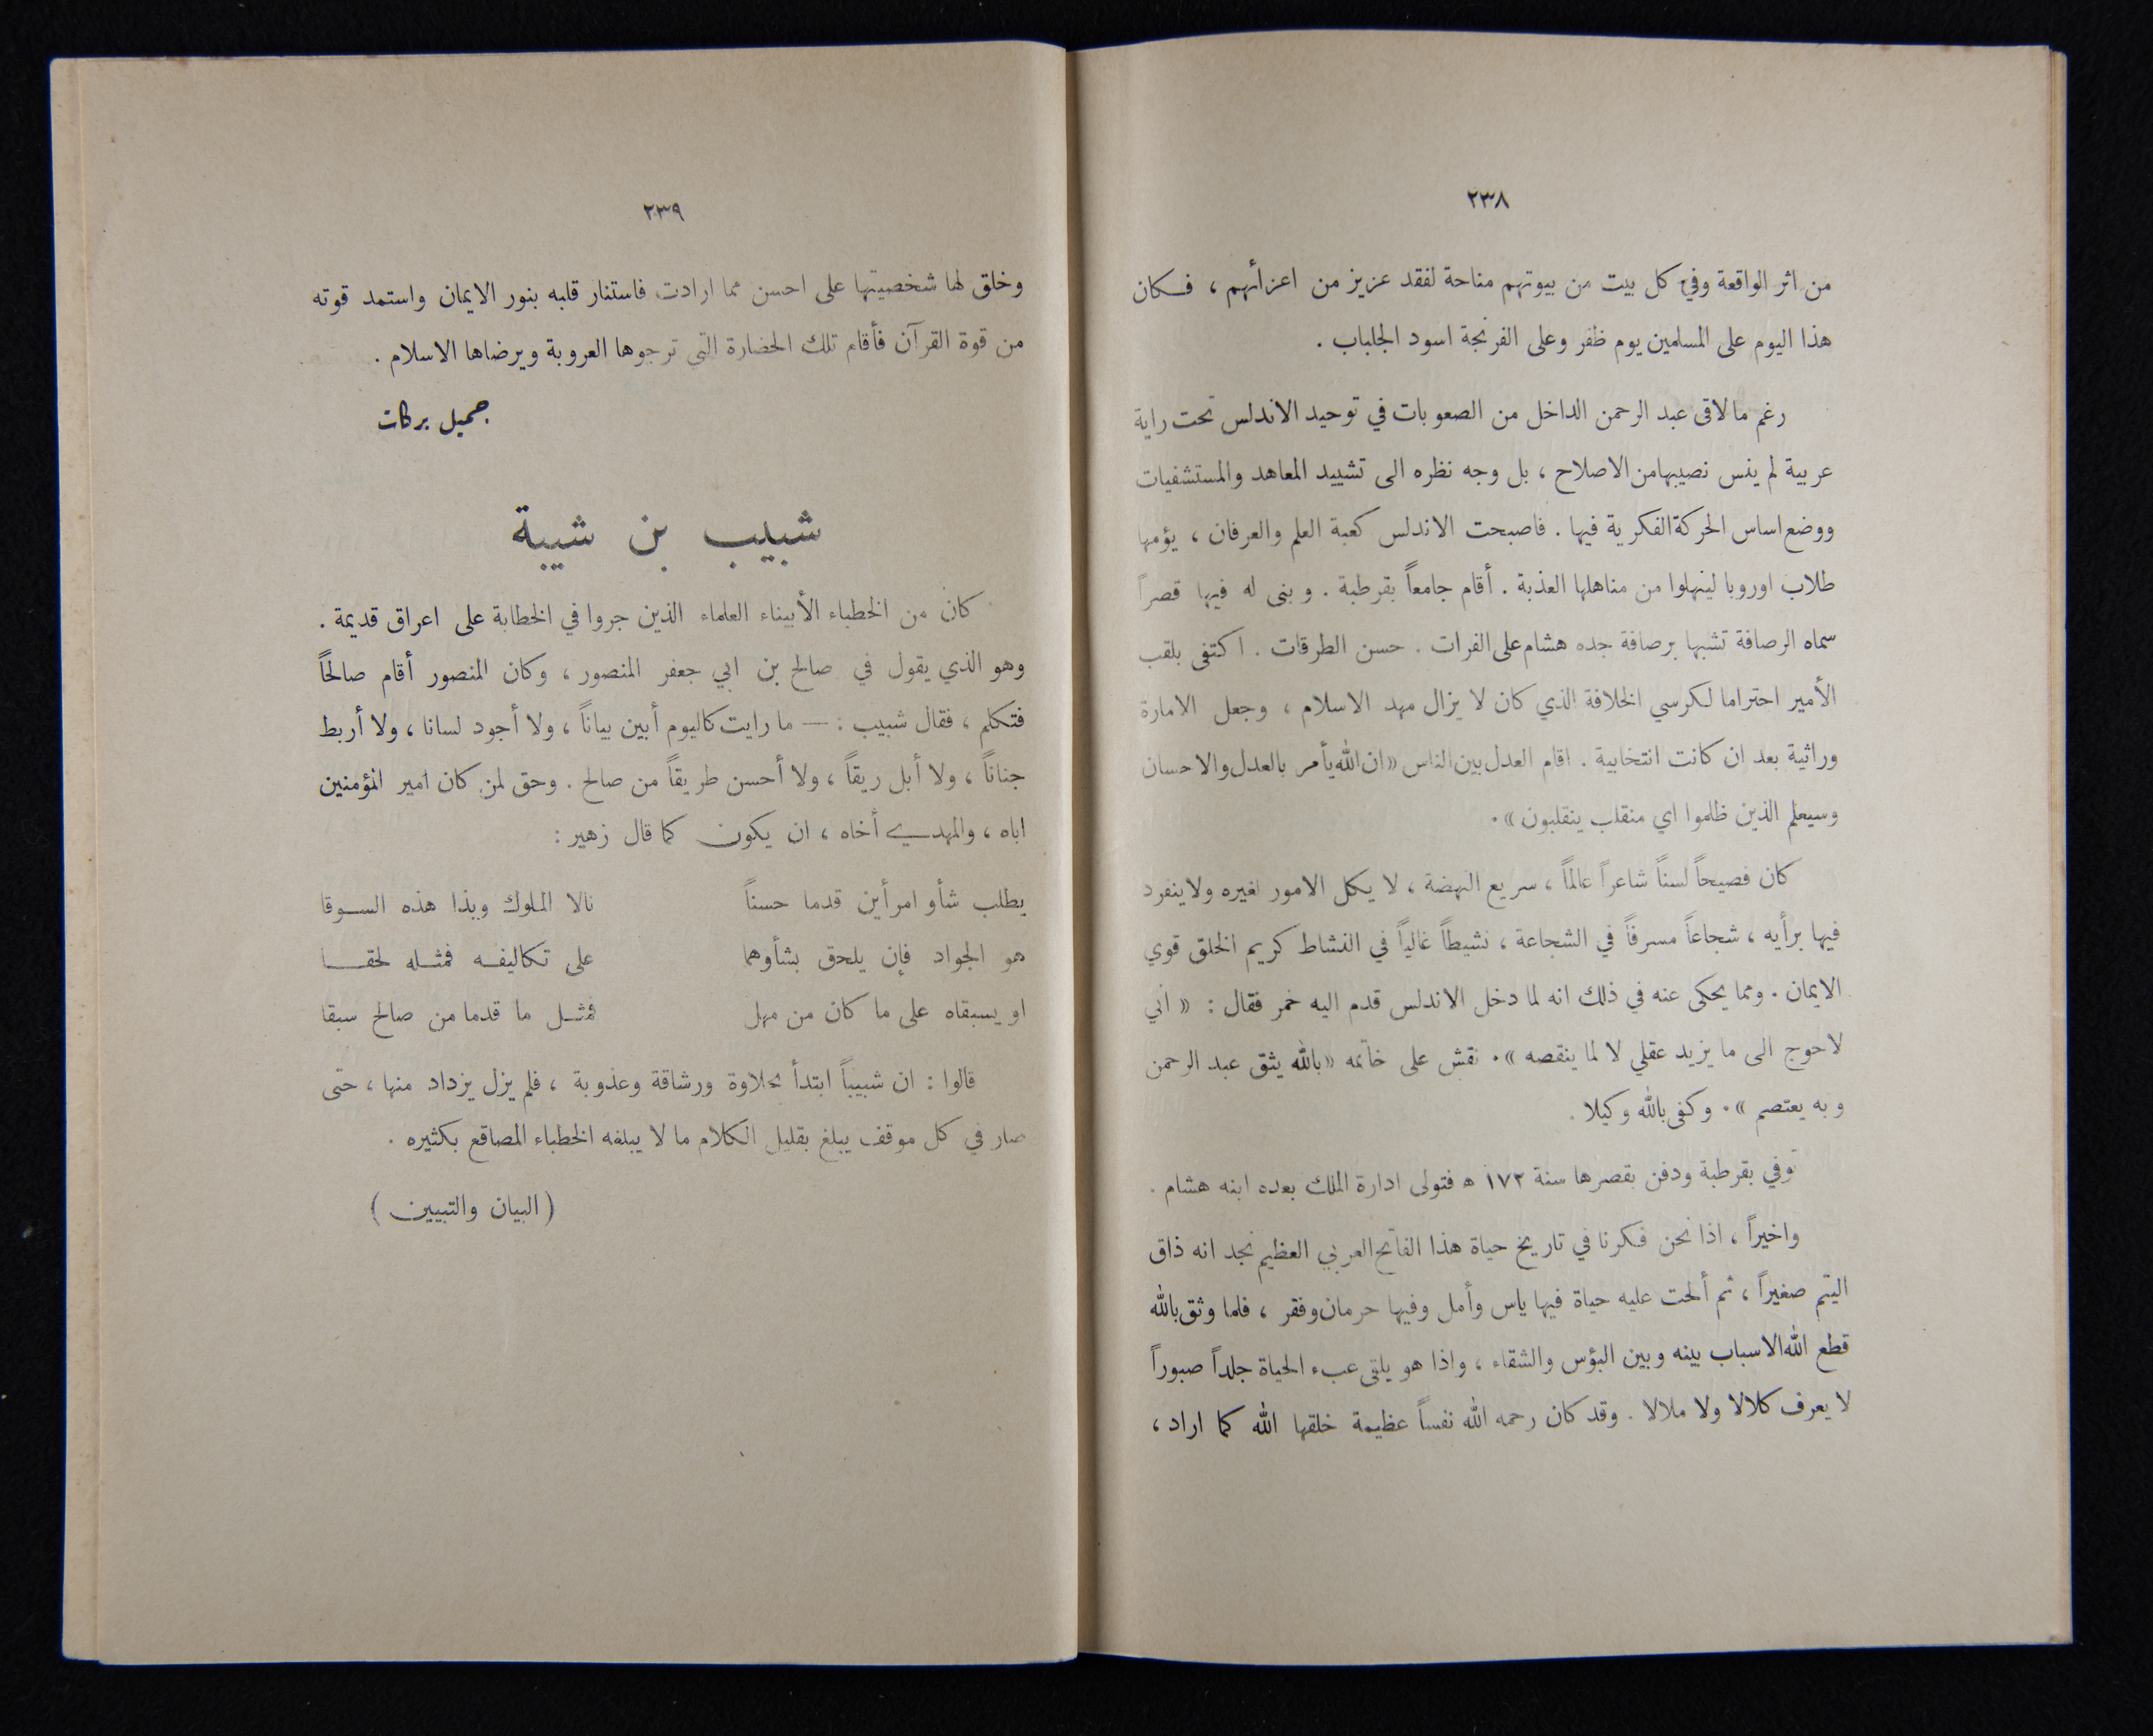 ٢٣٨
من اثر الواقعة وفي كل بيت من بيوتهم مناحة لفقد عزيز من اعزائهم ، فكان
هذا اليوم على المسلمين يوم ظفر وعلى الفرنجة اسود الجلباب .
رغم ما لاقى عبد الرحمن الداخل من الصعوبات في توحيد الاندلس تحت راية
عربية لم ينس نصيبها من الاصلاح ، بل وجه نظره الى تشييد المعاهد والمستشفيات
ووضع اساس الحركة الفكرية فيها . فاصبحت الاندلس كعبة العلم والعرفان ، يؤمها
طلاب اوروبا لينهلوا من مناهلها العذبة . أقام جامعاً بقرطبة . وبنى له فيها قصراً
سماه الرصافة تشبها برصافة جده هشام على الفرات . حسن الطرقات . اكتفى بلقب
الأمير احتراما لكرسي الخلافة الذي كان لا يزال مهد الاسلام ، وجعل الامارة
وراثية بعد ان كانت انتخابية . اقام العدل بين الناس «ان الله يأمر بالعدل والاحسان
وسيعلم الذين ظلموا اي منقلب ينقلبون» .
كان فصيحاً لسناً شاعراً عالماً ، سريع النهضة ، لا يكل الامور لغيره ولا ينفرد
فيها برأيه ، شجاعاً مسرفاً في الشجاعة ، نشيطاً غالياً في النشاط كريم الخلق قوي
الايمان . ومما يحكى عنه في ذلك انه لما دخل الاندلس قدم اليه خمر فقال : « اني
لاحوج الى ما يزيد عقلي لا لما ينقصه » . نقش على خاتمه «بالله يثق عبد الرحمن
وبه يعتصم » . وكفى بالله وكيلا .
توفي بقرطبة ودفن بقصرها سنة ١٧٢ ه فتولى ادارة الملك بعده ابنه هشام .
واخيراً ، اذا نحن فكرنا في تاريخ حياة هذا الفاتح العربي العظيم نجد انه ذاق
اليتم صغيراً ، ثم ألحت عليه حياة فيها ياس وأمل وفيها حرمان وفقر ، فلما وثق بالله
قطع الله الاسباب بينه وبين البؤس والشقاء ، واذا هو يلقى عبء الحياة جلداً صبوراً
لا يعرف كلالا ولا ملالا . وقد كان رحمه الله نفساً عظيمة خلقها الله كما اراد ،
٢٣٩
وخلق لها شخصيتها على احسن مما ارادت فاستنار قلبه بنور الايمان واستمد قوته
من قوة القرآن فأقام تلك الحضارة التي ترجوها العروبة ويرضاها الاسلام .
جميل بركات
شبيب بن شيبة
كان من الخطباء الأبيناء العلماء الذين جروا في الخطابة على اعراق قديمة .
وهو الذي يقول في صالح بن ابي جعفر المنصور ، وكان المنصور أقام صالحاً
فتكلم ، فقال شبيب : — ما رايت كاليوم أبين بياناً ، ولا أجود لسانا ، ولا أربط
جناناً ، ولا أبل ريقاً ، ولا أحسن طريقاً من صالح . وحق لمن كان امير المؤمنين
اباه ، والمهدي أخاه ، ان يكون كما قال زهير :
يطلب شأو امرأين قدما حسناً نالا الملوك وبذا هذه السوقا
هو الجواد فإن يلحق بشأوهما على تكاليفه فمثله لحقا
او يسبقاه على ما كان من مهل فمثل ما قدما من صالح سبقا
قالوا : ان شبيباً ابتدأ بحلاوة ورشاقة وعذوبة ، فلم يزل يزداد منها ، حتى
صار في كل موقف يبلغ بقليل الكلام ما لا يبلغه الخطباء المصاقع بكثيره .
( البيان والتبيين )